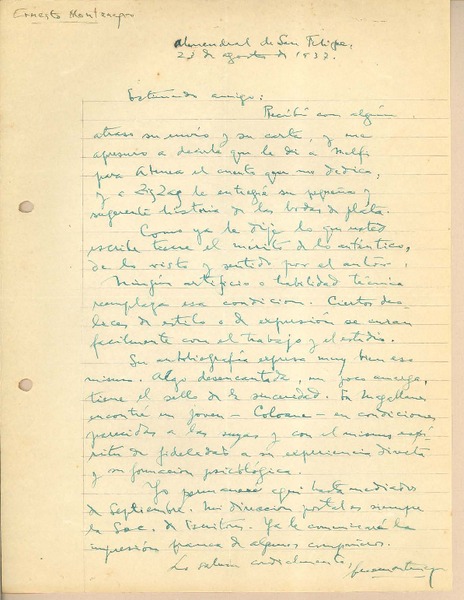 Ernesto Montenegro
Almendral de San Felipe,
23 de agosto de 1937.
Estimado amigo:
Recibí con algún
atraso su envío y su carta, y me
apresuro a decirle que le di a Melfi
para Atenea el cuento que me dedica,
y a ZigZag le entregué su pequeña y
sugerente historia de las bodas de plata.
Como ya le dije lo que usted
escribe tiene el mérito de lo auténtico,
de lo visto y sentido por el autor.
Ningún artificio o habilidad técnica
reemplaza esa condición. Ciertos des-
de estilo o de expresión se curan
facilmente con el trabajo y el estudio.
Su autobiografía expresa muy bien eso
mismo. Algo desencantada, un poco amarga,
tiene el sello de la sinceridad. En Magallanes
encontré un joven - Coloane - en condiciones
parecidas a las suyas y con el mismo espí-
ritu de fidelidad a su experiencia directa
y su formación psicológica.
Yo permaneceré aquí hasta mediados
de Septiembre. Mi dirección postal es siempre
la Soc. de Escritores. Ya le comunicaré la
impresión franca de algunos compañeros.
Lo saluda cordialmente,
Ernesto Montenegro